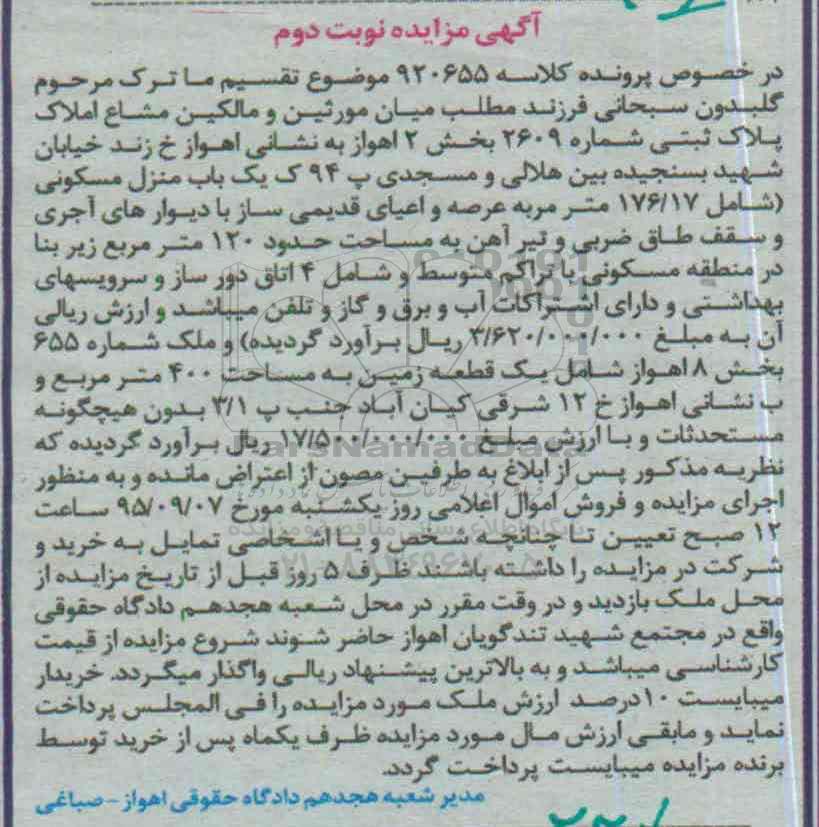 آگهی مزایده نوبت دوم
در خصوص پرونده کلاسه ۹۲۰۶۵۵ موضوع تقسیم ما ترک مرحوم
گلبدون سبحانی فرزند مطلب میان مورثین و مالکین مشاع املاک
پلاک ثبتی شماره ۲۶۰۹ بخش ۲ اهواز به نشانی اهواز خ زند خیابان
شهید بسنجیده بین هلالی و مسجدی پ ۹۴ ک یک باب منزل مسکونی
(شامل ۱۷۶/۱۷ متر مربه عرصه و اعیای قدیمی ساز با دیوار های آجری
و سقف طاق ضربی و تیر آهن به مساحت حدود ۱۲۰ متر مربع زیر بنا
در منطقه مسکونی با تراکم متوسط و شامل ۴ اتاق دور ساز و سرویسهای
بهداشتی و دارای اشتراکات آب و برق و گاز و تلفن میباشد و ارزش ریالی
آن به مبلغ ۳/۶۲۰/۰۰۰/۰۰۰ ریال برآورد گردیده) و ملک شماره ۶۵۵
بخش ۸ اهواز شامل یک قطعه زمین به مساحت ۴۰۰ متر مربع و
ب نشانی اهواز خ ۱۲ شرقی کیان آباد جنب پ ۳/۱ بدون هیچگونه
مستحدثات و با ارزش مبلغ ۱۷/۵۰۰/۰۰۰/۰۰۰ ریال برآورد گردیده که
ParsNamadData
نظریه مذکور پس از ابلاغ به طرفین مصون از اعتراض مانده و به منظور
اجرای مزایده و فروش اموال اعلامی روز یکشنبه مورخ ۹۵/۰۹/۰۷ ساعت
۱۲ صبح تعیین تا چنانچه شخص و یا اشخاصی تمایل به خرید و
شرکت در مزایده را داشته باشند ظرف ۵ روز قبل از تاریخ مزایده از
محل ملک بازدید و در وقت مقرر در محل شعبه هجدهم دادگاه حقوقی
واقع در مجتمع شهید تندگویان اهواز حاضر شوند شروع مزایده از قیمت
کارشناسی میباشد و به بالاترین پیشنهاد ریالی واگذار میگردد. خریدار
میبایست ۱۰درصد ارزش ملک مورد مزایده را فی المجلس پرداخت
نماید و مابقی ارزش مال مورد مزایده ظرف یکماه پس از خرید توسط
برنده مزایده میبایست پرداخت گردد.
مدیر شعبه هجدهم دادگاه حقوقی اهواز - صباغی